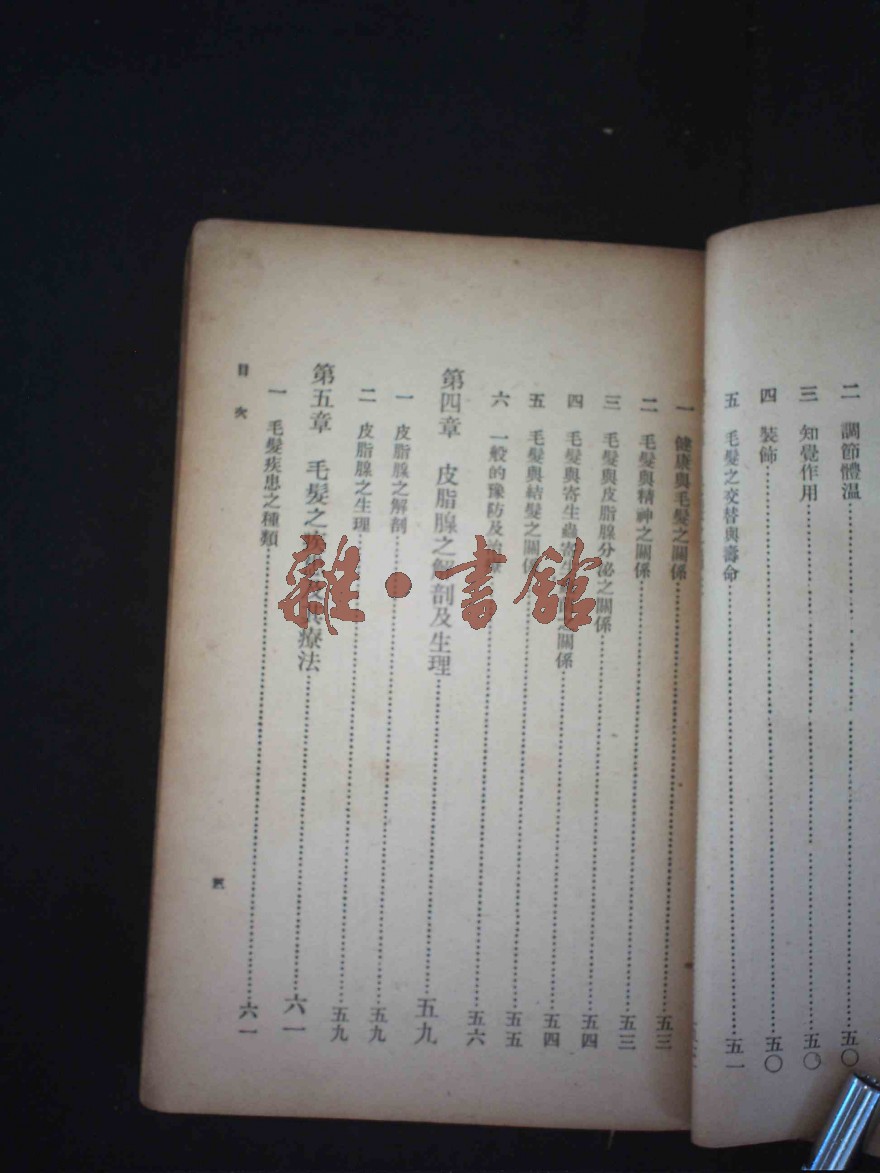 二 調節體溫 五〇
三 知覺作用 五〇
四 裝飾 五〇
五 毛髮之交替與壽命 五一
一 健康與毛髮之關係
二 毛髮與精神之關係 五三
三 毛髮與皮脂腺分泌之關係 五三
四 毛髮與寄生蟲寄生 之關係 五四
五 毛髮與結髮之關係 五四
六 一般的豫防及治療 五五
第四章 皮脂腺之解剖及生理 五九
一 皮脂腺之解剖 五九
二 皮脂腺之生理 五九
第五章 毛髮之疾患及其療法 六一
一 毛髮疾患之種類 六一
目次
雜·書館